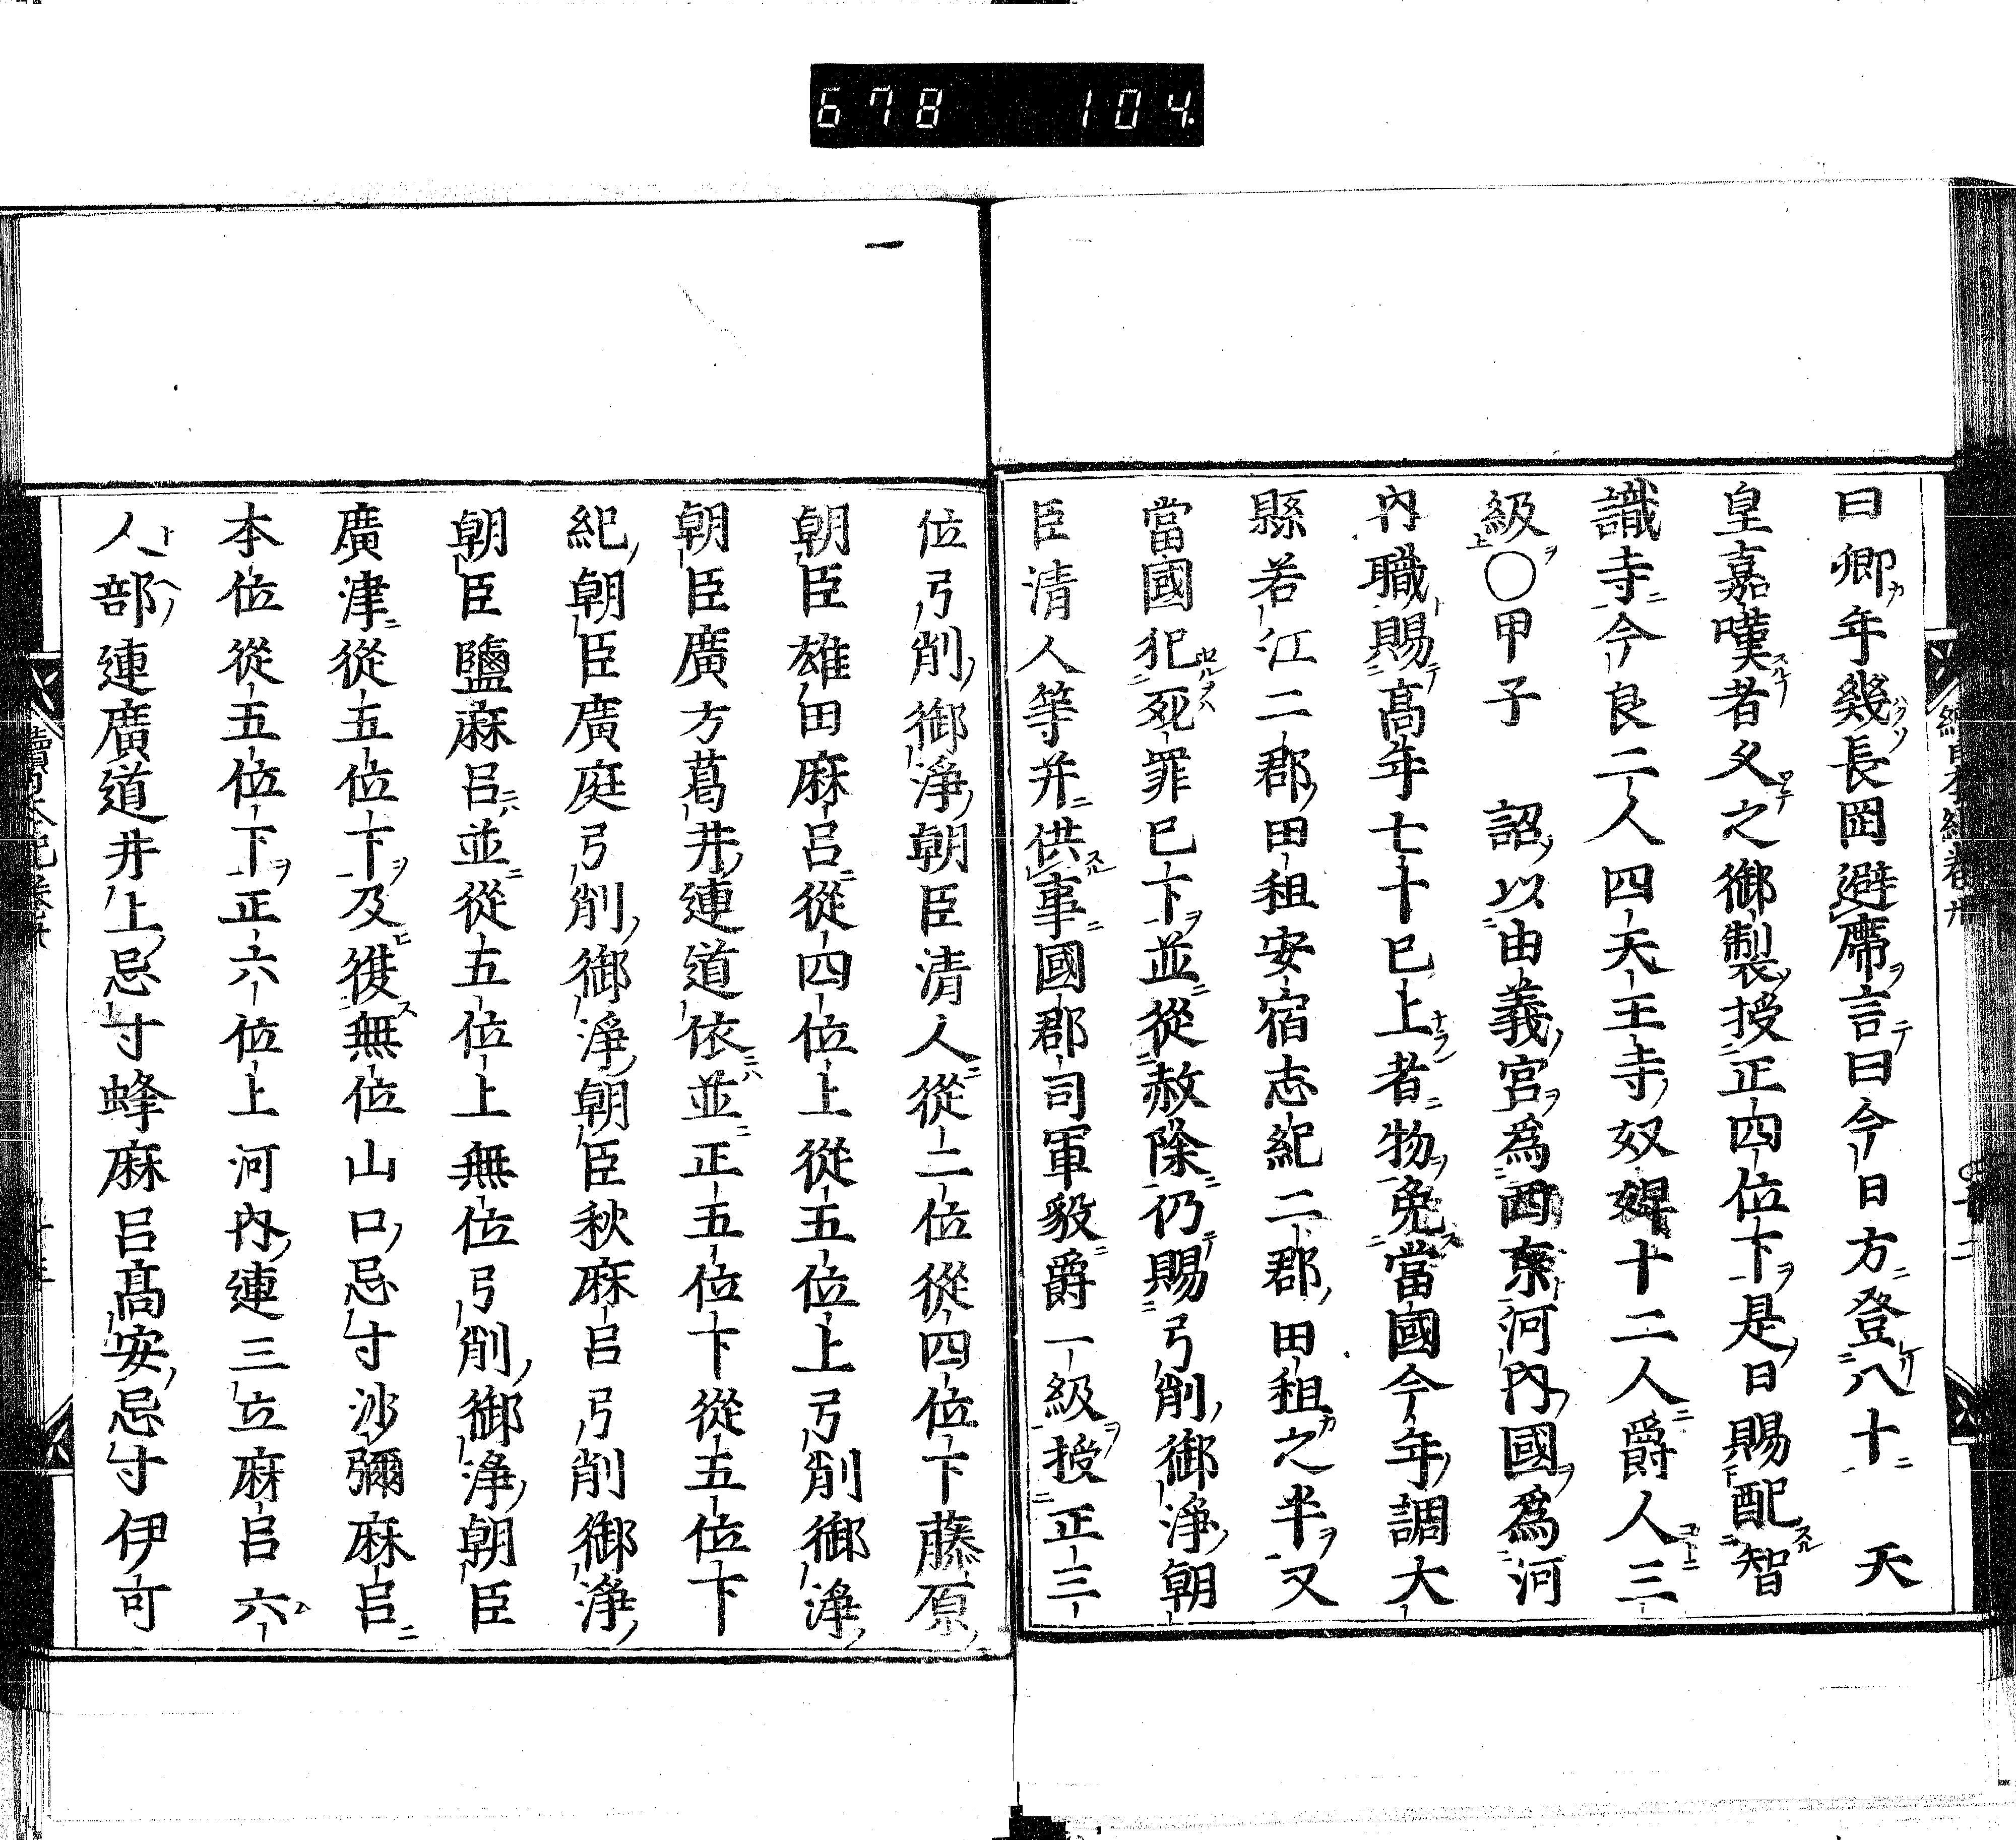 678 104
曰卿年幾長岡避席言曰今日方登八十天
皇嘉嘆者久之御製授正四位下是日賜配智
識寺今良二人四天王寺奴婢十二人爵人三
級○甲子詔以由義宮為西京河內國為河
內職賜高年七十已上者物免當國今年調大
縣若江二郡田租安宿志紀二郡田租之半又
當國犯死罪已下並從赦除仍賜弓削御淨朝
臣清人等并供事國郡司軍毅爵一級授正三
位弓削御淨朝臣清人從二位從四位下藤原
朝臣雄田麻呂從四位上從五位上弓削御淨
朝臣廣方葛井連道依並正五位下從五位下
紀朝臣廣庭弓削御淨朝臣秋麻呂弓削御淨
朝臣鹽麻呂並從五位上無位弓削御淨朝臣
廣津從五位下及復無位山口忌寸沙彌麻呂
本位從五位下正六位上河內連三立麻呂六
人部連廣道井上忌寸蜂麻呂高安忌寸伊可